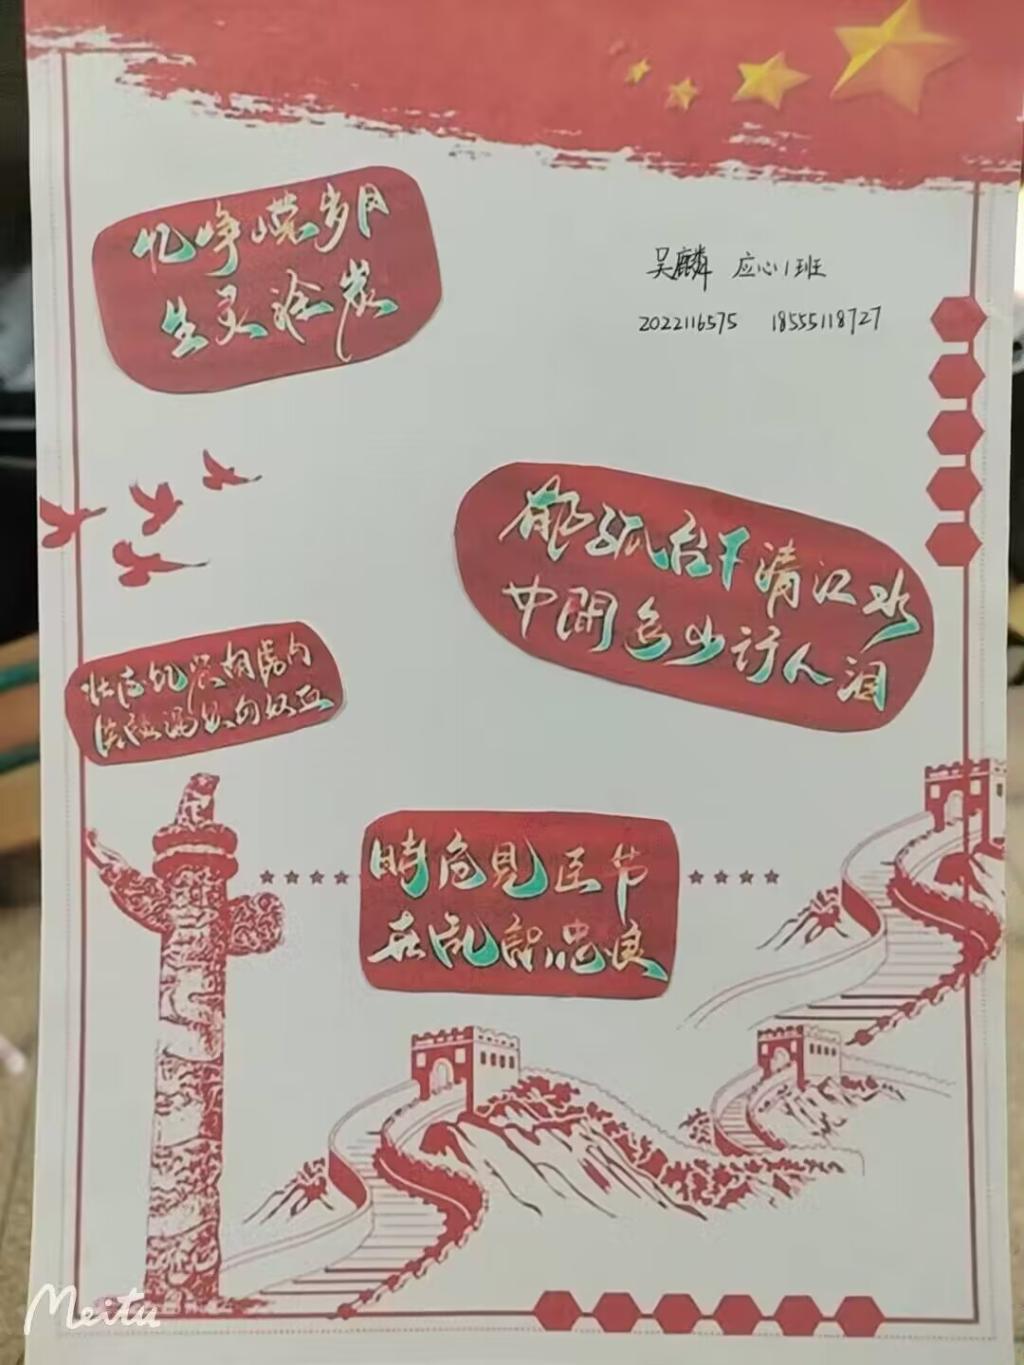 忆峥嵘岁月
生灵涂炭
吴麟 应心1班
2022116575 18555118727
郁孤台下清江水
中間多少行人泪
壮志飢餐胡虜肉
笑談渴飲匈奴血
時危見臣节
世乱識忠良
Meitu